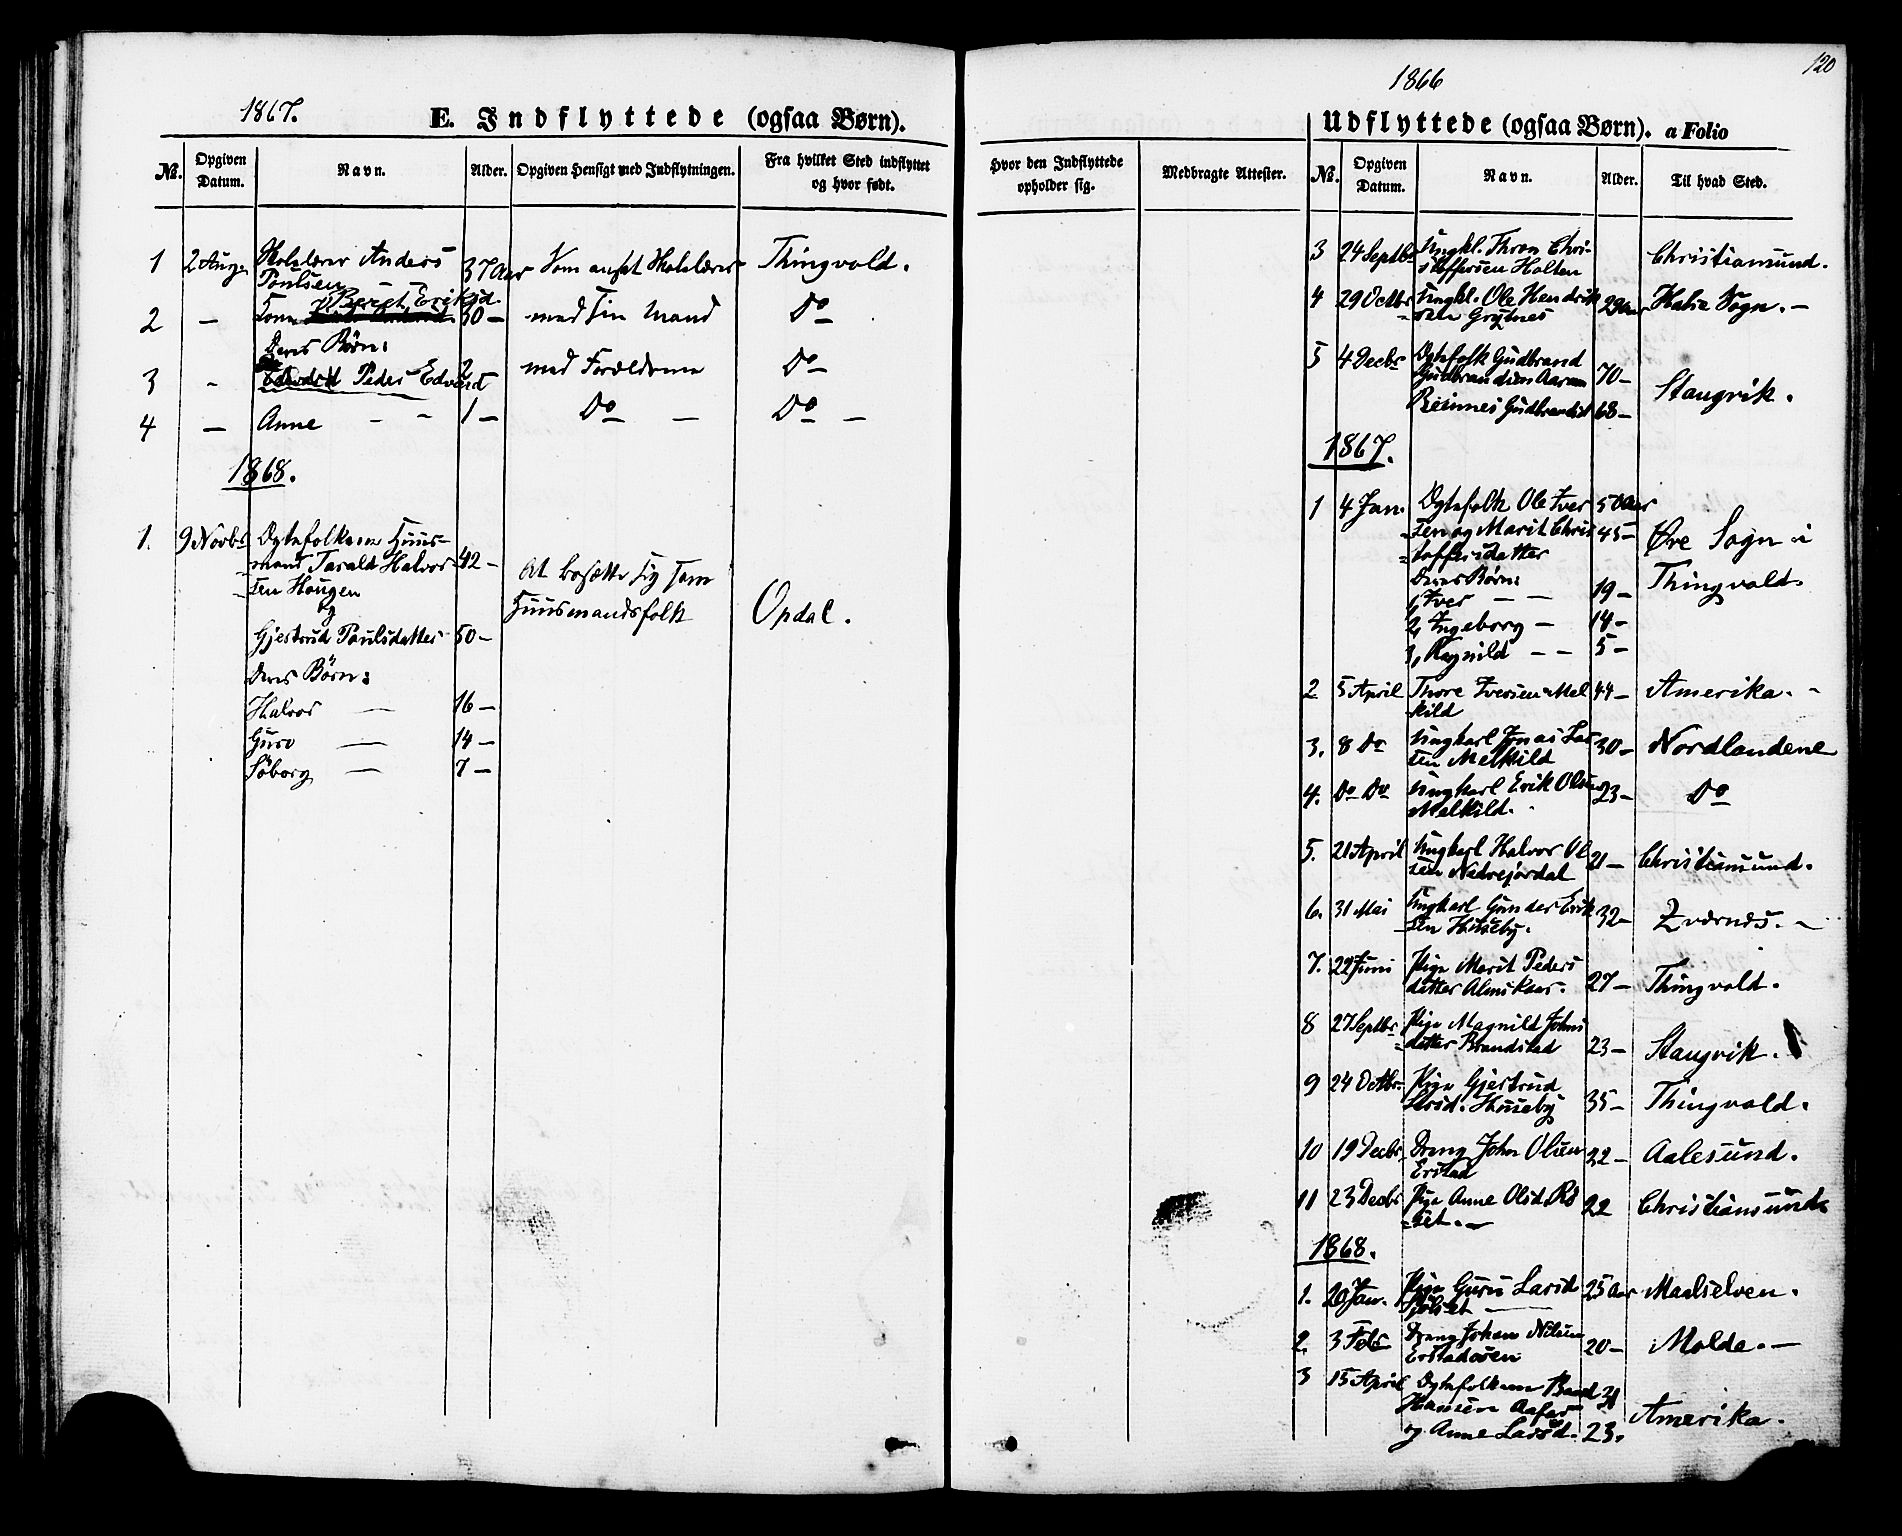 1867.
E. Indflyttede (ogsaa Børn).
No. Opgiven Datum. Navn. Alder. Opgiven Hensigt med Indflytningen. Fra hvilket Sted indflyttet og hvor født.
1 2 Aug. Skolelærer Anders 37 Aar Som ansat Skolelærer Thingvold.
Poulsen
Beret Eriksd.
2 — Kone 30 — med sin Mand Do
Deres Børn:
3 - Peder Edvard 2 med Forældrene Do —
4 — Anne — - 1 — Do — Do —
1868.
1. 9 Novbr Ægtefolkene Huus-
mand Tarald Halvor- 42 —
sen Haugen
og
At bosætte sig som
Huusmandsfolk Opdal.
Gjertrud Poulsdatter 50 —
Deres Børn:
Halvor — 16 —
Guro — 14 —
Söborg — 7 —
120
1866
Udflyttede (ogsaa Børn). a Folio
Hvor den Indflyttede opholder sig. Medbragte Attester. No. Opgiven Datum. Navn. Alder. Til hvad Sted.
3 24 Septbr Ungkl. Thron Chri-
stoffersen Holten Christiansund.
4 29 Octbr Ungkl. Ole Hendrik 29 Aar Halse Sogn. —
sen Grytnes
5 4 Decbr Ægtefolk Gudbrand
Gudbrandsen Aaram 70 —
Gudbrandsd 68 — Stangvik.
1867.
1 4 Jan. Ægtefolk Ole Iver 50 Aar
sen og Marit Chris 45 — Øre Sogn i
toffersdatter
Deres Børn: Thingvold.
1, Iver — — 19 —
2, Ingeborg — 14 —
3, Ragnild — — 5 —
2 5 April Thore Iversen Mel 44 — Amerika. -
kild
3. 8 Do Ungkarl Jonas Lar 30 — Nordlandene
sen Melkild
4. Do Do Ungkarl Erik Olsen 23 — Do
Melkild.
5. 21 April Ungkarl Halvor Ol 21 — Christiansund.
sen Nedrejordal
6. 31 Mai Ungkarl Gunder Erik 32 — Tværnes. -
sen Huseby.
7. 22 Juni Pige Marit Peders
datter Almskaar. 27 — Thingvold.
8 27 Septbr Pige Magnild Johns
datter Brandstad 23 — Stangvik.
9 24 Octbr Pige Gjertrud
Larsd. Huseby 35 — Thingvold.
10 19 Decbr Dreng John Olsen 22 — Aalesund.
Erstad
11 23 Decbr Pige Anne Olsd. Rö 22 Christiansund.
set. —
1868.
1. 20 Jan. Pige Guru Larsd 25 Aar Maalselven.
—
2. 3 Febr Dreng Johan Nilsen 20 — Molde. —
Erstadosen
3 15 April Ægtefolkene Baard 31
Hansen Amerika.
og Anne Larsd. 23.